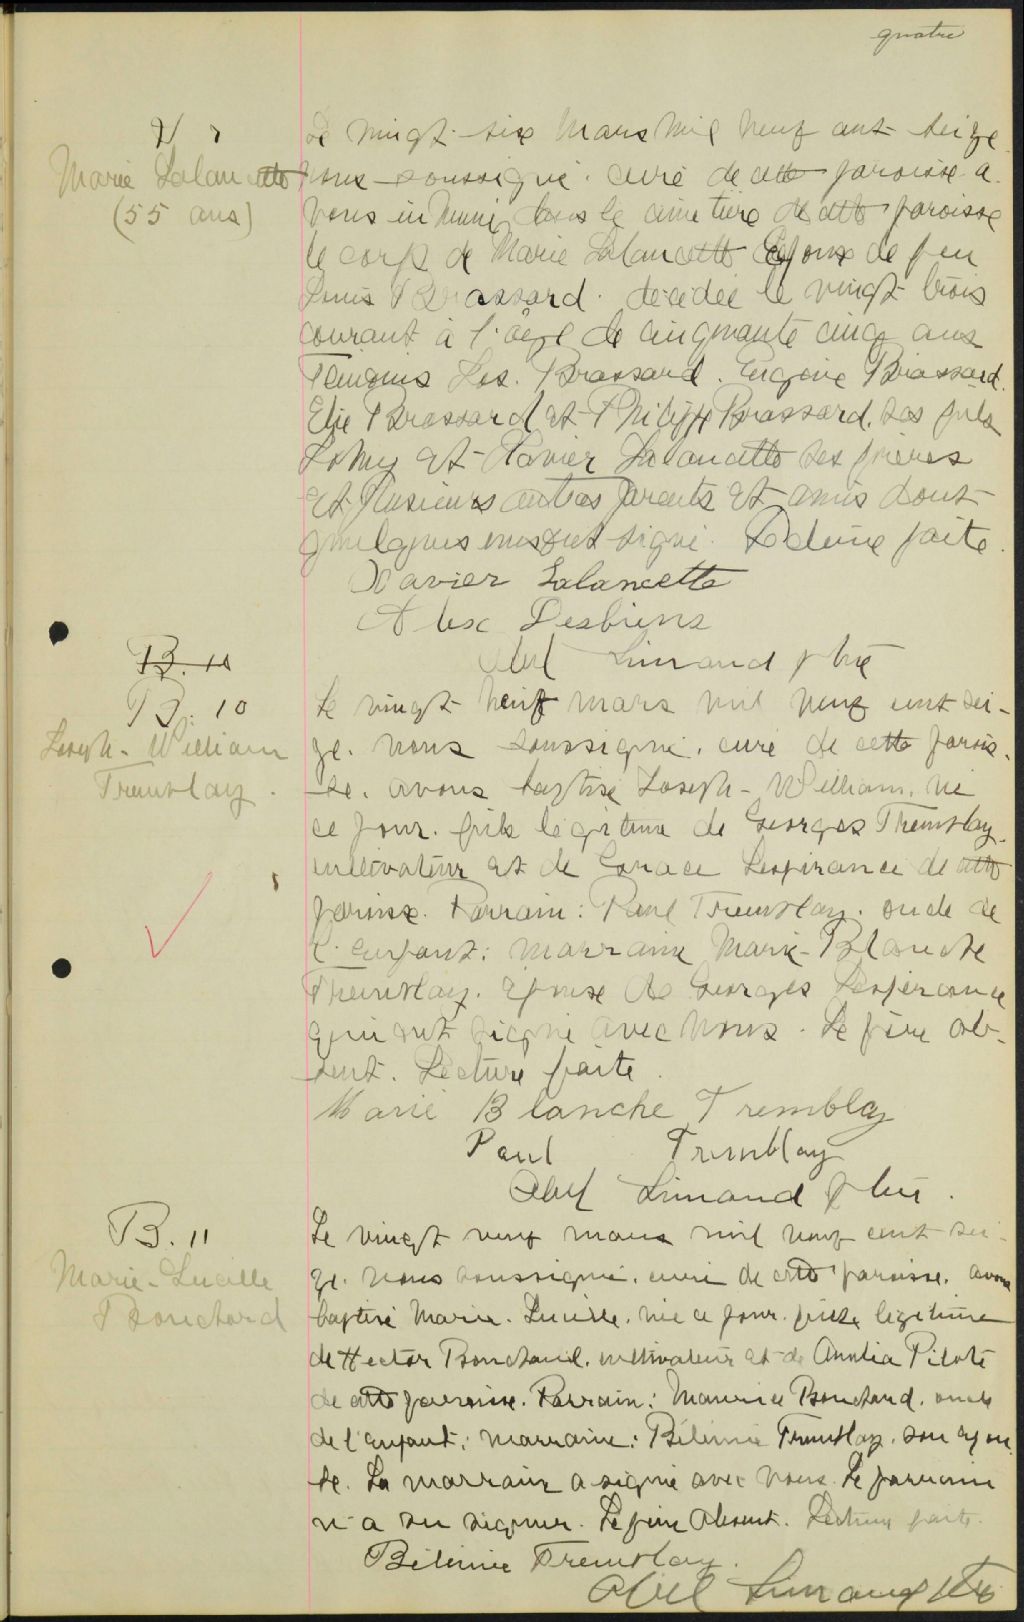 quatre
Marie Lalancette
(55 ans)
Le vingt-six Mars mil neuf cent seize
nous soussigné, curé de cette paroisse a
vons inhumé dans le cimetière de cette paroisse
le corps de Marie Lalancette épouse de feu
Louis Brassard. décédée le vingt trois
courant à l'âge de cinquante cinq ans
Témoins Jos. Brassard. Eugène Brassard.
Elie Brassard et Philippe Brassard, ses fils
et Xavier Lalancette ses frères
et plusieurs autres parents et amis dont
quelques uns ont signé. Lecture faite.
Xavier Lalancette
Alex Desbiens
Abel Simard ptre
B. 10
B. 10
Joseph-William
Tremblay.
Le vingt neuf mars mil neuf cent sei-
ze. nous soussigné, curé de cette parois-
se. avons baptisé Joseph-William, né
ce jour. fils légitime de Georges Tremblay.
cultivateur et de Lespérance de cette
paroisse. Parrain: Paul Tremblay. oncle de
l'enfant: marraine Marie-Blanche
Tremblay. épouse de Georges Lespérance
qui ont signé avec nous. Le père ab-
sent. Lecture faite.
Marie Blanche Tremblay
Paul Tremblay
Abel Simard ptre.
B. 11
Marie-Lucille
Bouchard
Le vingt neuf mars mil neuf cent sei-
ze. nous soussigné, curé de cette paroisse. avons
baptisé Marie-Lucille. née ce jour. fille légitime
de Hector Bouchard. cultivateur et de Pilote
de cette paroisse. Parrain: Maurice Bouchard. oncle
de l'enfant: marraine: Bélémie Tremblay. son épou
se. La marraine a signé avec nous. Le parrain
n'a su signer. Le père absent. Lecture faite.
Bélémie Tremblay.
Abel Simard ptre